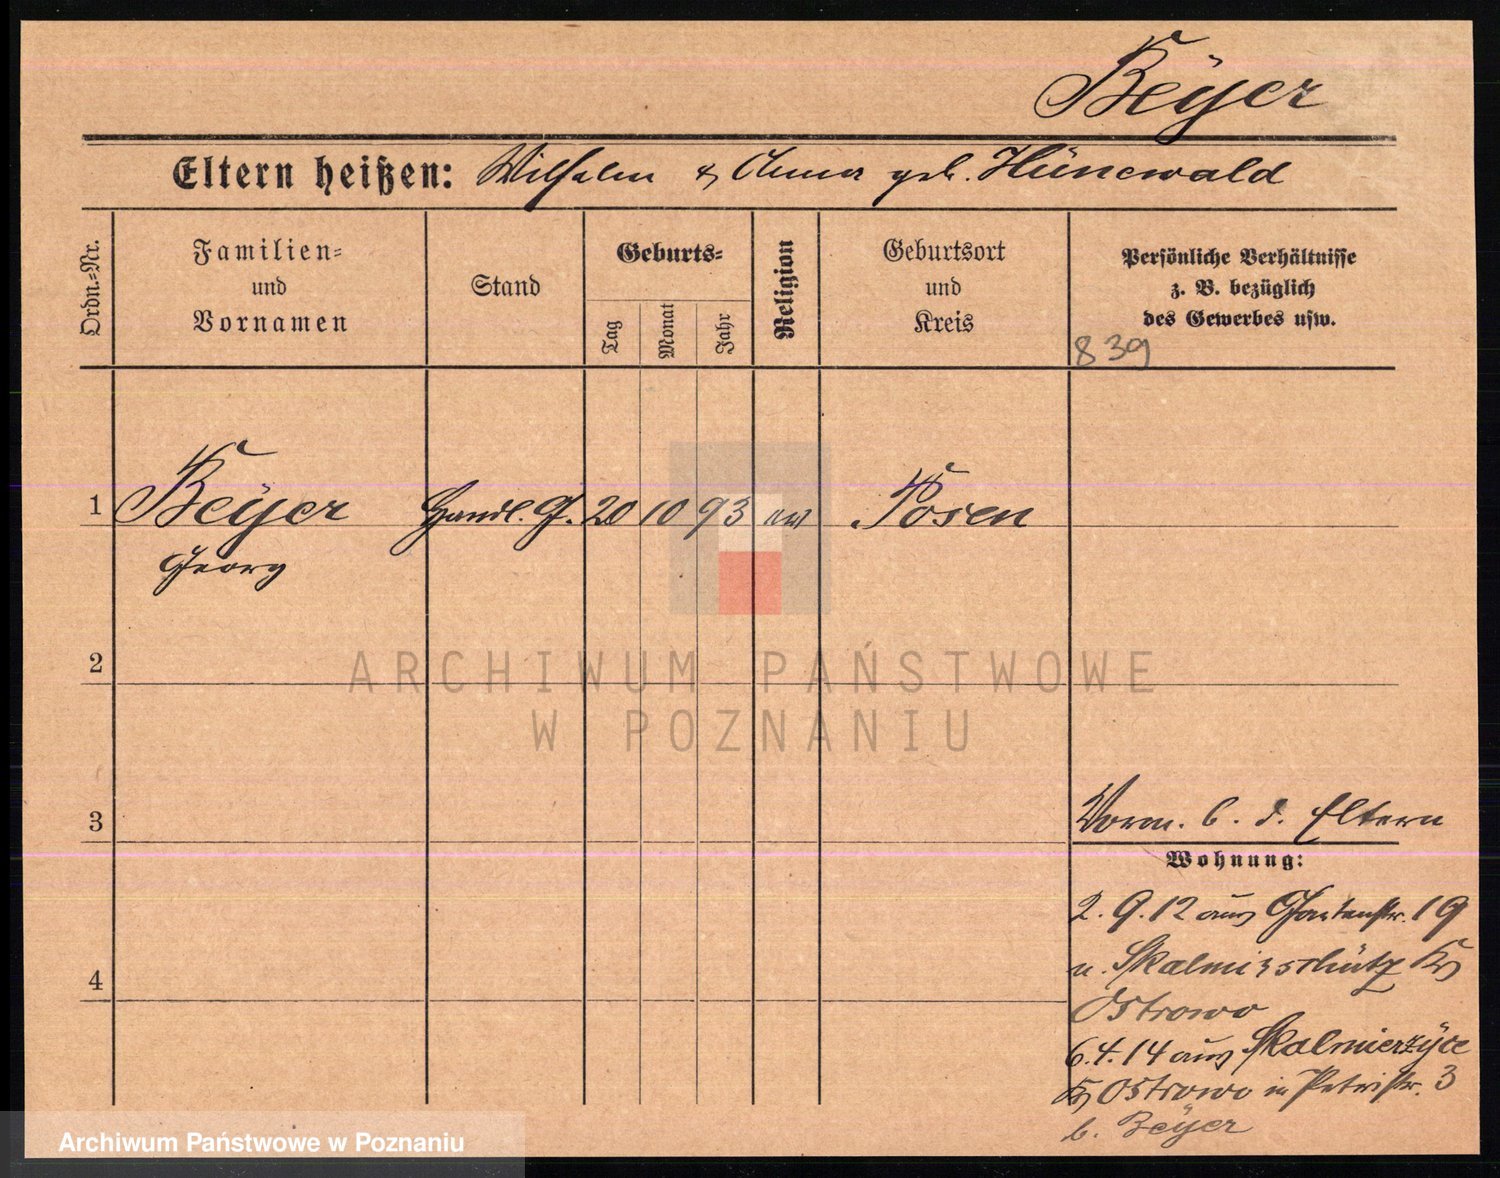 Beÿer
Eltern heißen: Wilhelm & Anna geb. Hünewald
Ordn.=Nr.
Familien=
und
Vornamen
Stand
Geburts=
Tag
Monat
Jahr
Religion
Geburtsort
und
Kreis
Persönliche Verhältnisse
z. B. bezüglich
des Gewerbes usw.
839
1 Beÿer Handl. G. 20 10 93 ev Posen
Georg
2
3
Vorm. b. d. Eltern
Wohnung:
2.9.12 aus Gartenstr. 19
n. Skalmierschütz Kr
Ostrowo
4
6.4.14 aus Skalmierzÿce
Kr Ostrowo in Petristr. 3
b. Beÿer
ARCHIWUM PAŃSTWOWE
W POZNANIU
Archiwum Państwowe w Poznaniu